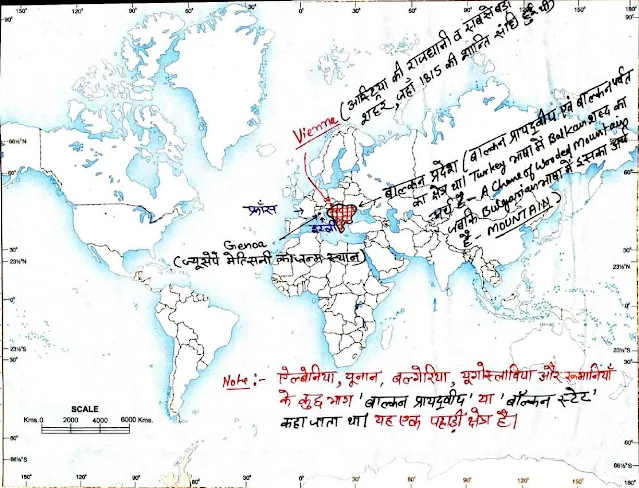 180° 150° 120° 90° 60° 30° 0° 30° 60° 90° 120° 150° 180°
Vienna (आस्ट्रिया की राजधानी व सबसे बड़ा
शहर, जहाँ 1815 की शान्ति संधि हुई थी)
बाल्कन प्रदेश (बाल्कन प्रायद्वीप एवं बाल्कन पर्वत
का क्षेत्र था। Turkey भाषा में Balkan शब्द का
अर्थ है - A Chane of Wooded Mountain
जबकि Bulgarian भाषा में इसका अर्थ
है - MOUNTAIN)
फ्राँस
इटली
Genoa
(ज्यूसेपे मेत्सिनी का जन्म स्थान)
66½°N
30°
23½°N
0°
23½°S
30°
66½°S
Note:- ऐल्बेनिया, यूनान, बल्गेरिया, यूगोस्लाविया और रूमानियाँ
के कुछ भाग 'बाल्कन प्रायद्वीप' या 'बॉल्कन स्टेट'
कहा जाता था। यह एक पहाड़ी क्षेत्र है।
SCALE
Kms. 0 2000 4000 6000 Kms.
150° 120° 90° 60° 30° 0° 30° 60° 90° 120° 150°